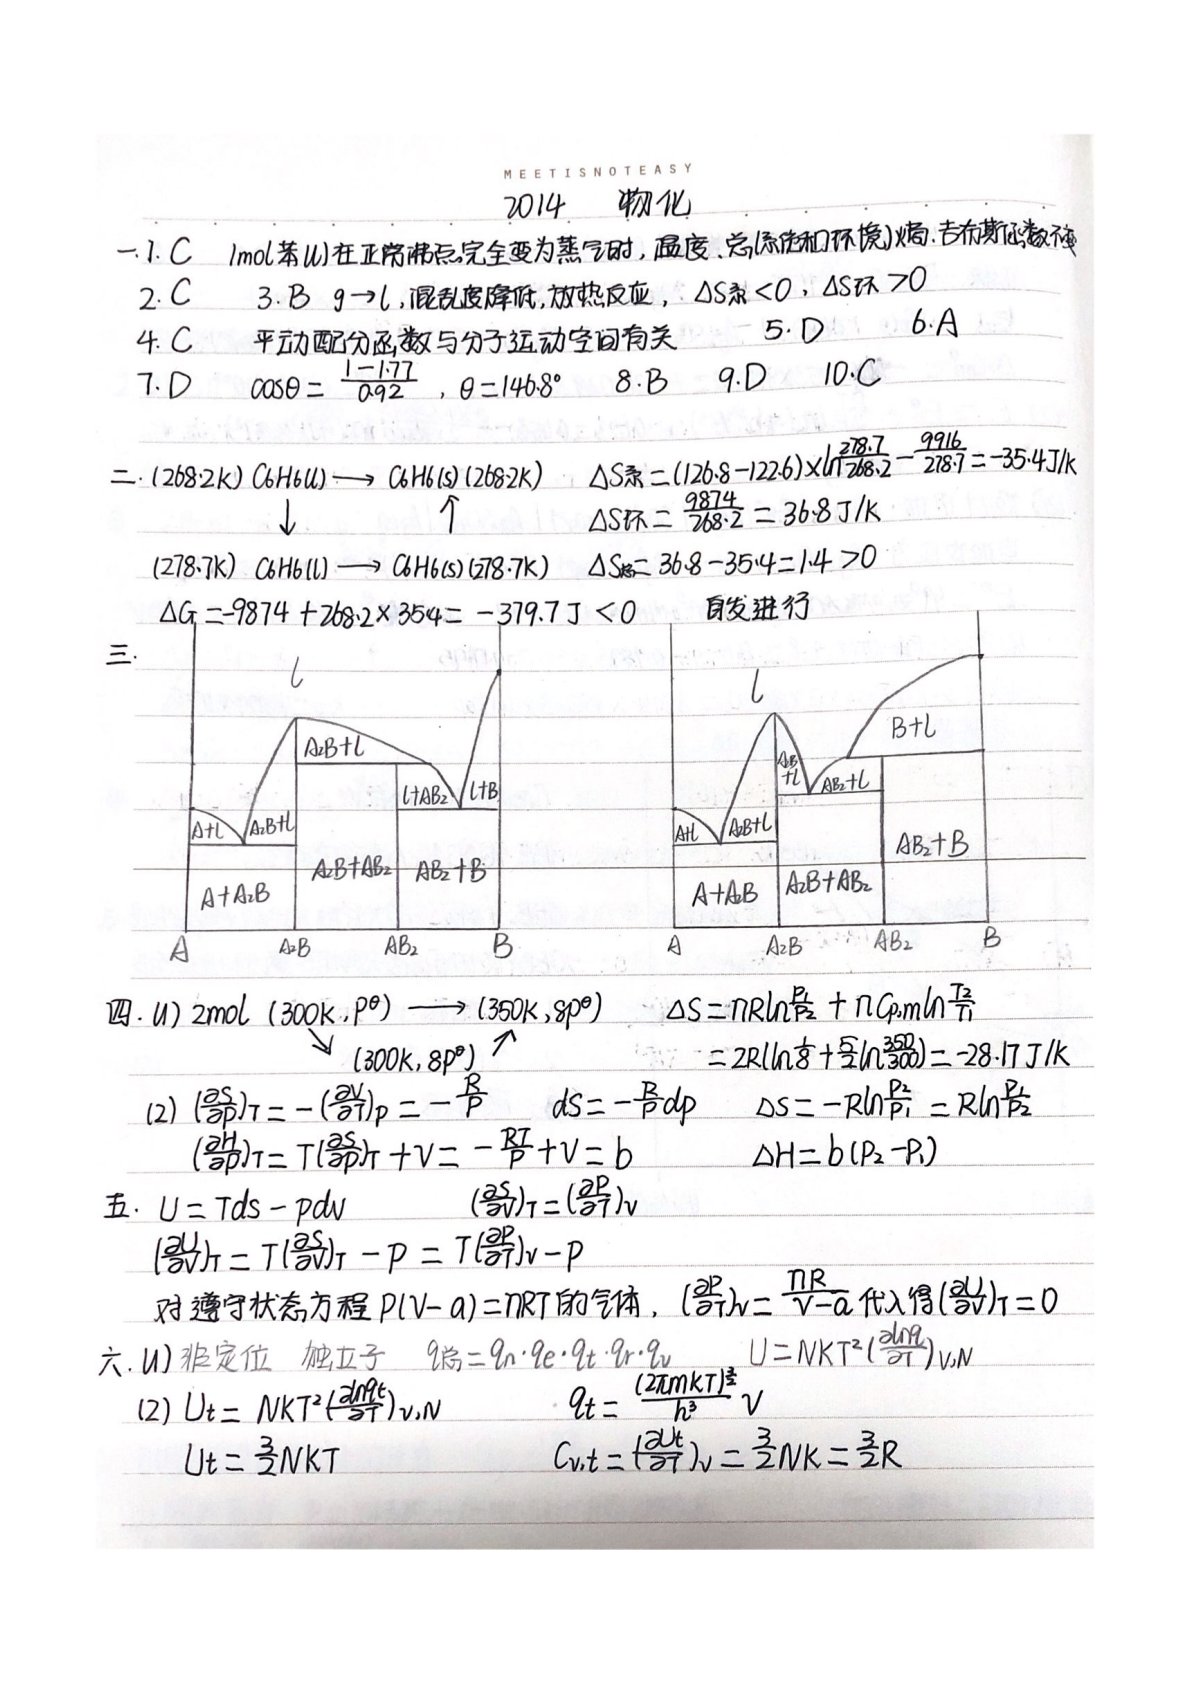 MEETISNOTEASY
2014 物化
一.1.C 1mol苯(l)在正常沸点完全变为蒸气时,温度、总(系统和环境)熵、吉布斯函数不变
2.C 3.B g→l,混乱度降低,放热反应, ΔS系<0, ΔS环>0
4.C 平动配分函数与分子运动空间有关 5.D 6.A
7.D cosθ=(1-1.77)/0.92, θ=146.8° 8.B 9.D 10.C
二.(268.2K) C6H6(l)→C6H6(s)(268.2K) ΔS系=(126.8-122.6)×ln(278.7/268.2)-9916/278.7=-35.4J/K
↓ ↑ ΔS环=9874/268.2=36.8J/K
(278.7K) C6H6(l)→C6H6(s)(278.7K) ΔS总=36.8-35.4=1.4>0
ΔG=-9874+268.2×35.4=-379.7J<0 自发进行
三.
l
A2B+l
l+AB2
l+B
A+l
A2B+l
A2B+AB2
AB2+B
A+A2B
A A2B AB2 B
l
B+l
A2B+l
AB2+l
A+l
A2B+l
AB2+B
A2B+AB2
A+A2B
A A2B AB2 B
四.(1) 2mol (300K,pθ)→(350K,8pθ) ΔS=nRln(P1/P2)+nCp,mln(T2/T1)
↘(300K,8pθ)↗ =2R(ln(1/8)+(5/2)ln(350/300))=-28.17J/K
(2) (∂S/∂p)T=-(∂V/∂T)p=-R/P dS=-(R/P)dp ΔS=-Rln(P2/P1)=Rln(P1/P2)
(∂H/∂p)T=T(∂S/∂p)T+V=-RT/P+V=b ΔH=b(P2-P1)
五. U=Tds-pdv (∂S/∂V)T=(∂P/∂T)V
(∂U/∂V)T=T(∂S/∂V)T-P=T(∂P/∂T)V-P
对遵守状态方程P(V-a)=nRT的气体, (∂P/∂T)V=nR/(V-a)代入得(∂U/∂V)T=0
六.(1)非定位 独立子 q总=qn·qe·qt·qr·qv U=NKT²(∂lnq/∂T)V,N
(2) Ut=NKT²(∂lnqt/∂T)V,N qt=((2πmKT)^(3/2)/h³)V
Ut=3/2NKT Cv,t=(∂Ut/∂T)V=3/2NK=3/2R